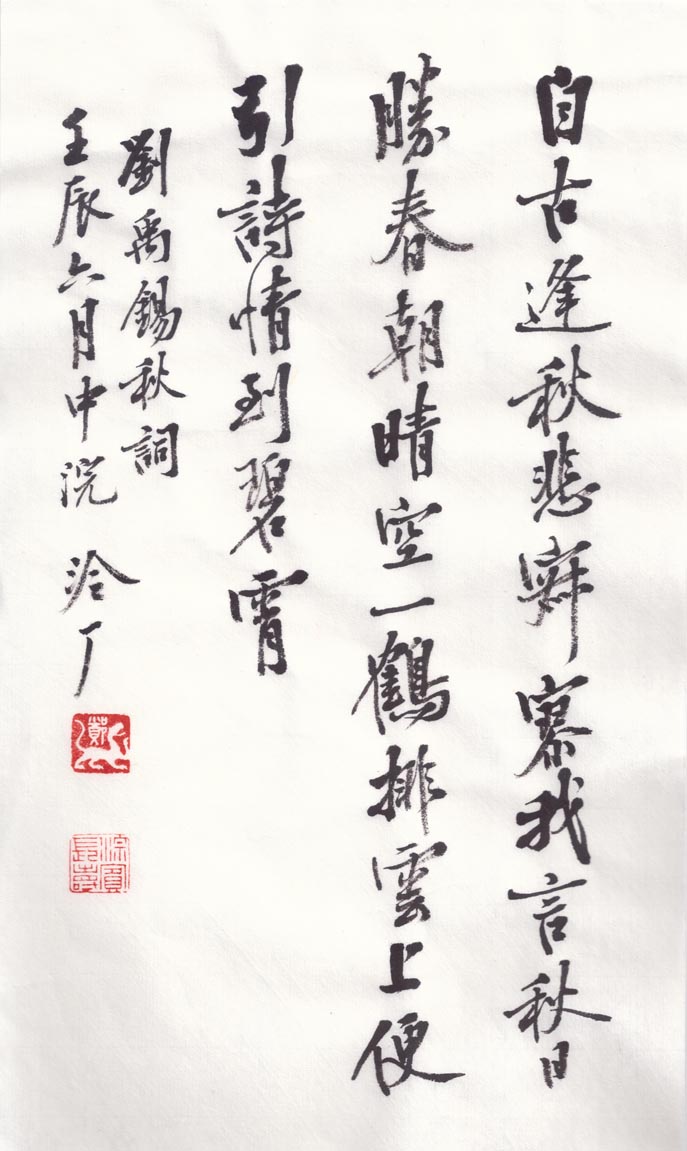 自古逢秋悲寂寥我言秋日
勝春朝晴空一鶴排雲上便
引詩情到碧霄
劉禹錫秋詞
壬辰六月中浣 泠厂